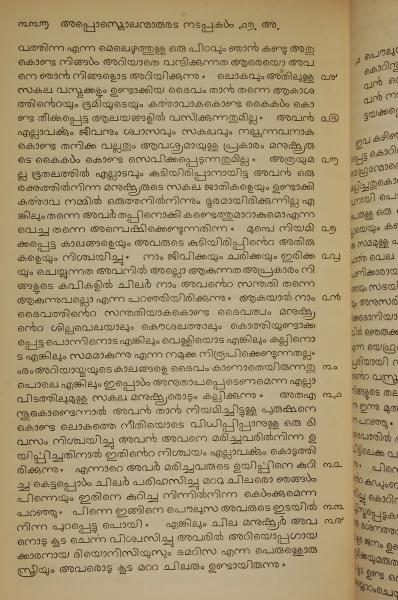 ൩൩൬ അപ്പൊസ്തൊലന്മാരുടെ നടപ്പുകൾ ൧൭. അ.
വത്തിന്ന എന്ന മെലെഴുത്തുള്ള ഒരു പീഠവും ഞാൻ കണ്ടു അതു
കൊണ്ട നിങ്ങൾ അറിയാതെ വന്ദിക്കുന്നത ആരെയൊ അവ
നെ ഞാൻ നിങ്ങളൊട അറിയിക്കുന്നു ലൊകവും അതിലുള്ള ൨൪
സകല വസ്തുക്കളും ഉണ്ടാക്കിയ ദൈവം താൻ തന്നെ ആകാശ
ത്തിന്റെയും ഭൂമിയുടെയും കൎത്താവാകകൊണ്ട കൈകൾ കൊ
ണ്ട തീൎക്കപ്പെട്ട ആലയങ്ങളിൽ വസിക്കുന്നതുമില്ല അവൻ ൨൫
എല്ലാവൎക്കും ജീവനും ശ്വാസവും സകലവും നല്കുന്നവനാക
കൊണ്ട തനിക്ക വല്ലതും ആവശ്യമായുള്ള പ്രകാരം മനുഷ്യരു
ടെ കൈകൾ കൊണ്ട സെവിക്കപ്പെടുന്നതുമില്ല അത്രയുമ ൨൬
ല്ല ഭൂതലത്തിൽ എല്ലാടവും കുടിയിരിപ്പാനായിട്ട അവൻ ഒരു
രക്തത്തിൽനിന്ന മനുഷ്യരുടെ സകല ജാതികളെയും ഉണ്ടാക്കി
കൎത്താവ നമ്മിൽ ഒരുത്തനിൽനിന്നും ദൂരമായിരിക്കുന്നില്ല എ
ങ്കിലും തന്നെ അവർ തപ്പിനൊക്കി കണ്ടെത്തുമാറാകുമൊ എന്ന
വെച്ച തന്നെ അന്വെഷിക്കെണ്ടുന്നതിന്ന മുമ്പെ നിയമി ൨൭
ക്കപ്പെട്ട കാലങ്ങളെയും അവരുടെ കുടിയിരിപ്പിന്റെ അതിരു
കളെയും നിശ്ചയിച്ചു നാം ജീവിക്കയും ചരിക്കയും ഇരിക്ക ൨൮
യും ചെയ്യുന്നത അവനിൽ അല്ലൊ ആകുന്നത അപ്രകാരം നി
ങ്ങളുടെ കവികളിൽ ചിലർ നാം അവന്റെ സന്തതി തന്നെ
ആകുന്നുവല്ലൊ എന്ന പറഞ്ഞിയിരിക്കുന്നു ആകയാൽ നാം ൨൯
ദൈവത്തിന്റെ സന്തതിയാകകൊണ്ട ദൈവത്വം മനുഷ്യ
ന്റെ ശില്പവെലയാലും കൌശലത്താലും കൊത്തിയുണ്ടാക്ക
പ്പെട്ട പൊന്നിനൊട എങ്കിലും വെള്ളിയൊട എങ്കിലും കല്ലിനൊ
ട എങ്കിലും സമമാകുന്നു എന്ന നമുക്ക നിരൂപിക്കെണ്ടുന്നതല്ല
ൟ അറിയായ്മയുടെ കാലങ്ങളെ ദൈവം കാണാതെയിരുന്നതു ൩൦
പൊലെ എങ്കിലും ഇപ്പൊൾ അനുതാപപ്പെടെണമെന്ന എല്ലാ
വിടത്തിലുമുള്ള സകല മനുഷ്യരൊടും കല്പിക്കുന്നു അതെ ൩൧
ന്തുകൊണ്ടെന്നാൽ അവൻ താൻ നിയമിച്ചിട്ടുള്ള പുരുഷനെ
കൊണ്ട ലൊകത്തെ നീതിയൊടെ വിധിപ്പിപ്പാനുള്ള ഒരു ദി
വസം നിശ്ചയിച്ചു അവൻ അവനെ മരിച്ചവരിൽനിന്ന ഉ
യിൎപ്പിച്ചതിനാൽ ഇതിന്റെ നിശ്ചയം എല്ലാവൎക്കും കൊടുത്തി
രിക്കുന്നു എന്നാറെ അവർ മരിച്ചവരുടെ ഉയിൎപ്പിനെ കുറി ൩൨
ച്ച കെട്ടപ്പൊൾ ചിലർ പരിഹസിച്ചു മറ്റു ചിലരൊ ഞങ്ങൾ
പിന്നെയും ഇതിനെ കുറിച്ച നിന്നിൽനിന്ന കെൾക്കുമെന്ന
പറഞ്ഞു പിന്നെ ഇങ്ങിനെ പൌലുസ അവരുടെ ഇടയിൽ ൩൩
നിന്ന പുറപ്പെട്ടു പൊയി എങ്കിലും ചില മനുഷ്യർ അവ ൩൪
നൊടു കൂട ചെന്ന വിശ്വസിച്ചു അവരിൽ അറിയൊപ്പഗായ
ക്കാരനായ ദിയൊനിസിയൂസും ദമറിസ എന്ന പെരുള്ളൊരു
സ്ത്രീയും അവരൊടു കൂട മറ്റു ചിലരും ഉണ്ടായിരുന്നു